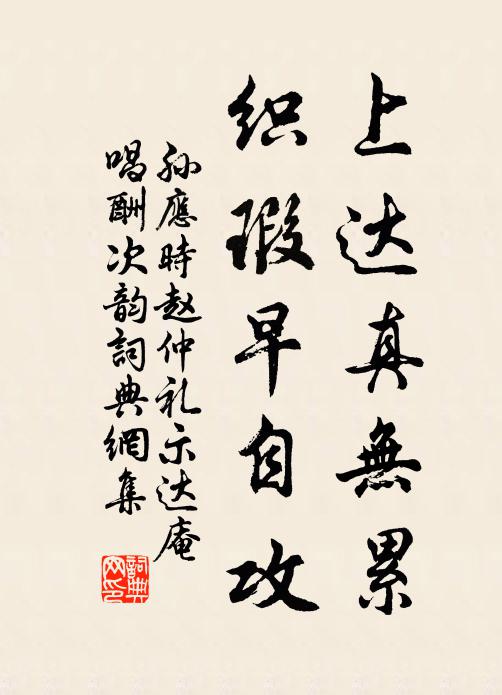 上达真無累
织瑕早自攻
孙應時赵仲礼示达庵
唱酬次韵詞典網集
詞典网印